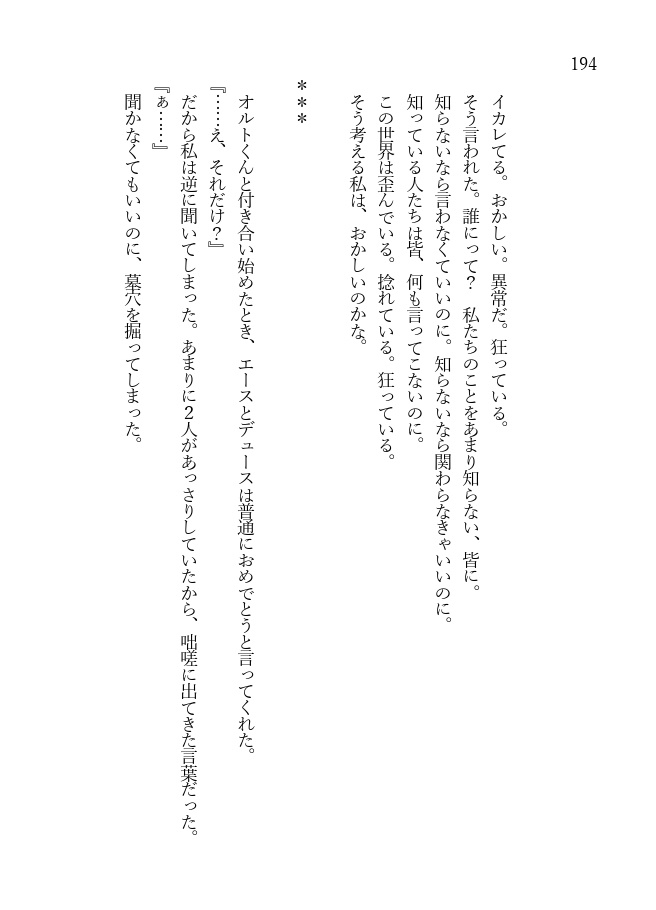 194
イカレてる。おかしい。異常だ。狂っている。
そう言われた。誰にって？　私たちのことをあまり知らない、皆に。
知らないなら言わなくていいのに。知らないなら関わらなきゃいいのに。
知っている人たちは皆、何も言ってこないのに。
この世界は歪んでいる。捻れている。狂っている。
そう考える私は、おかしいのかな。
＊＊＊
オルトくんと付き合い始めたとき、エースとデュースは普通におめでとうと言ってくれた。
『……え、それだけ？』
だから私は逆に聞いてしまった。あまりに２人があっさりしていたから、咄嗟に出てきた言葉だった。
『ぁ……』
聞かなくてもいいのに、墓穴を掘ってしまった。